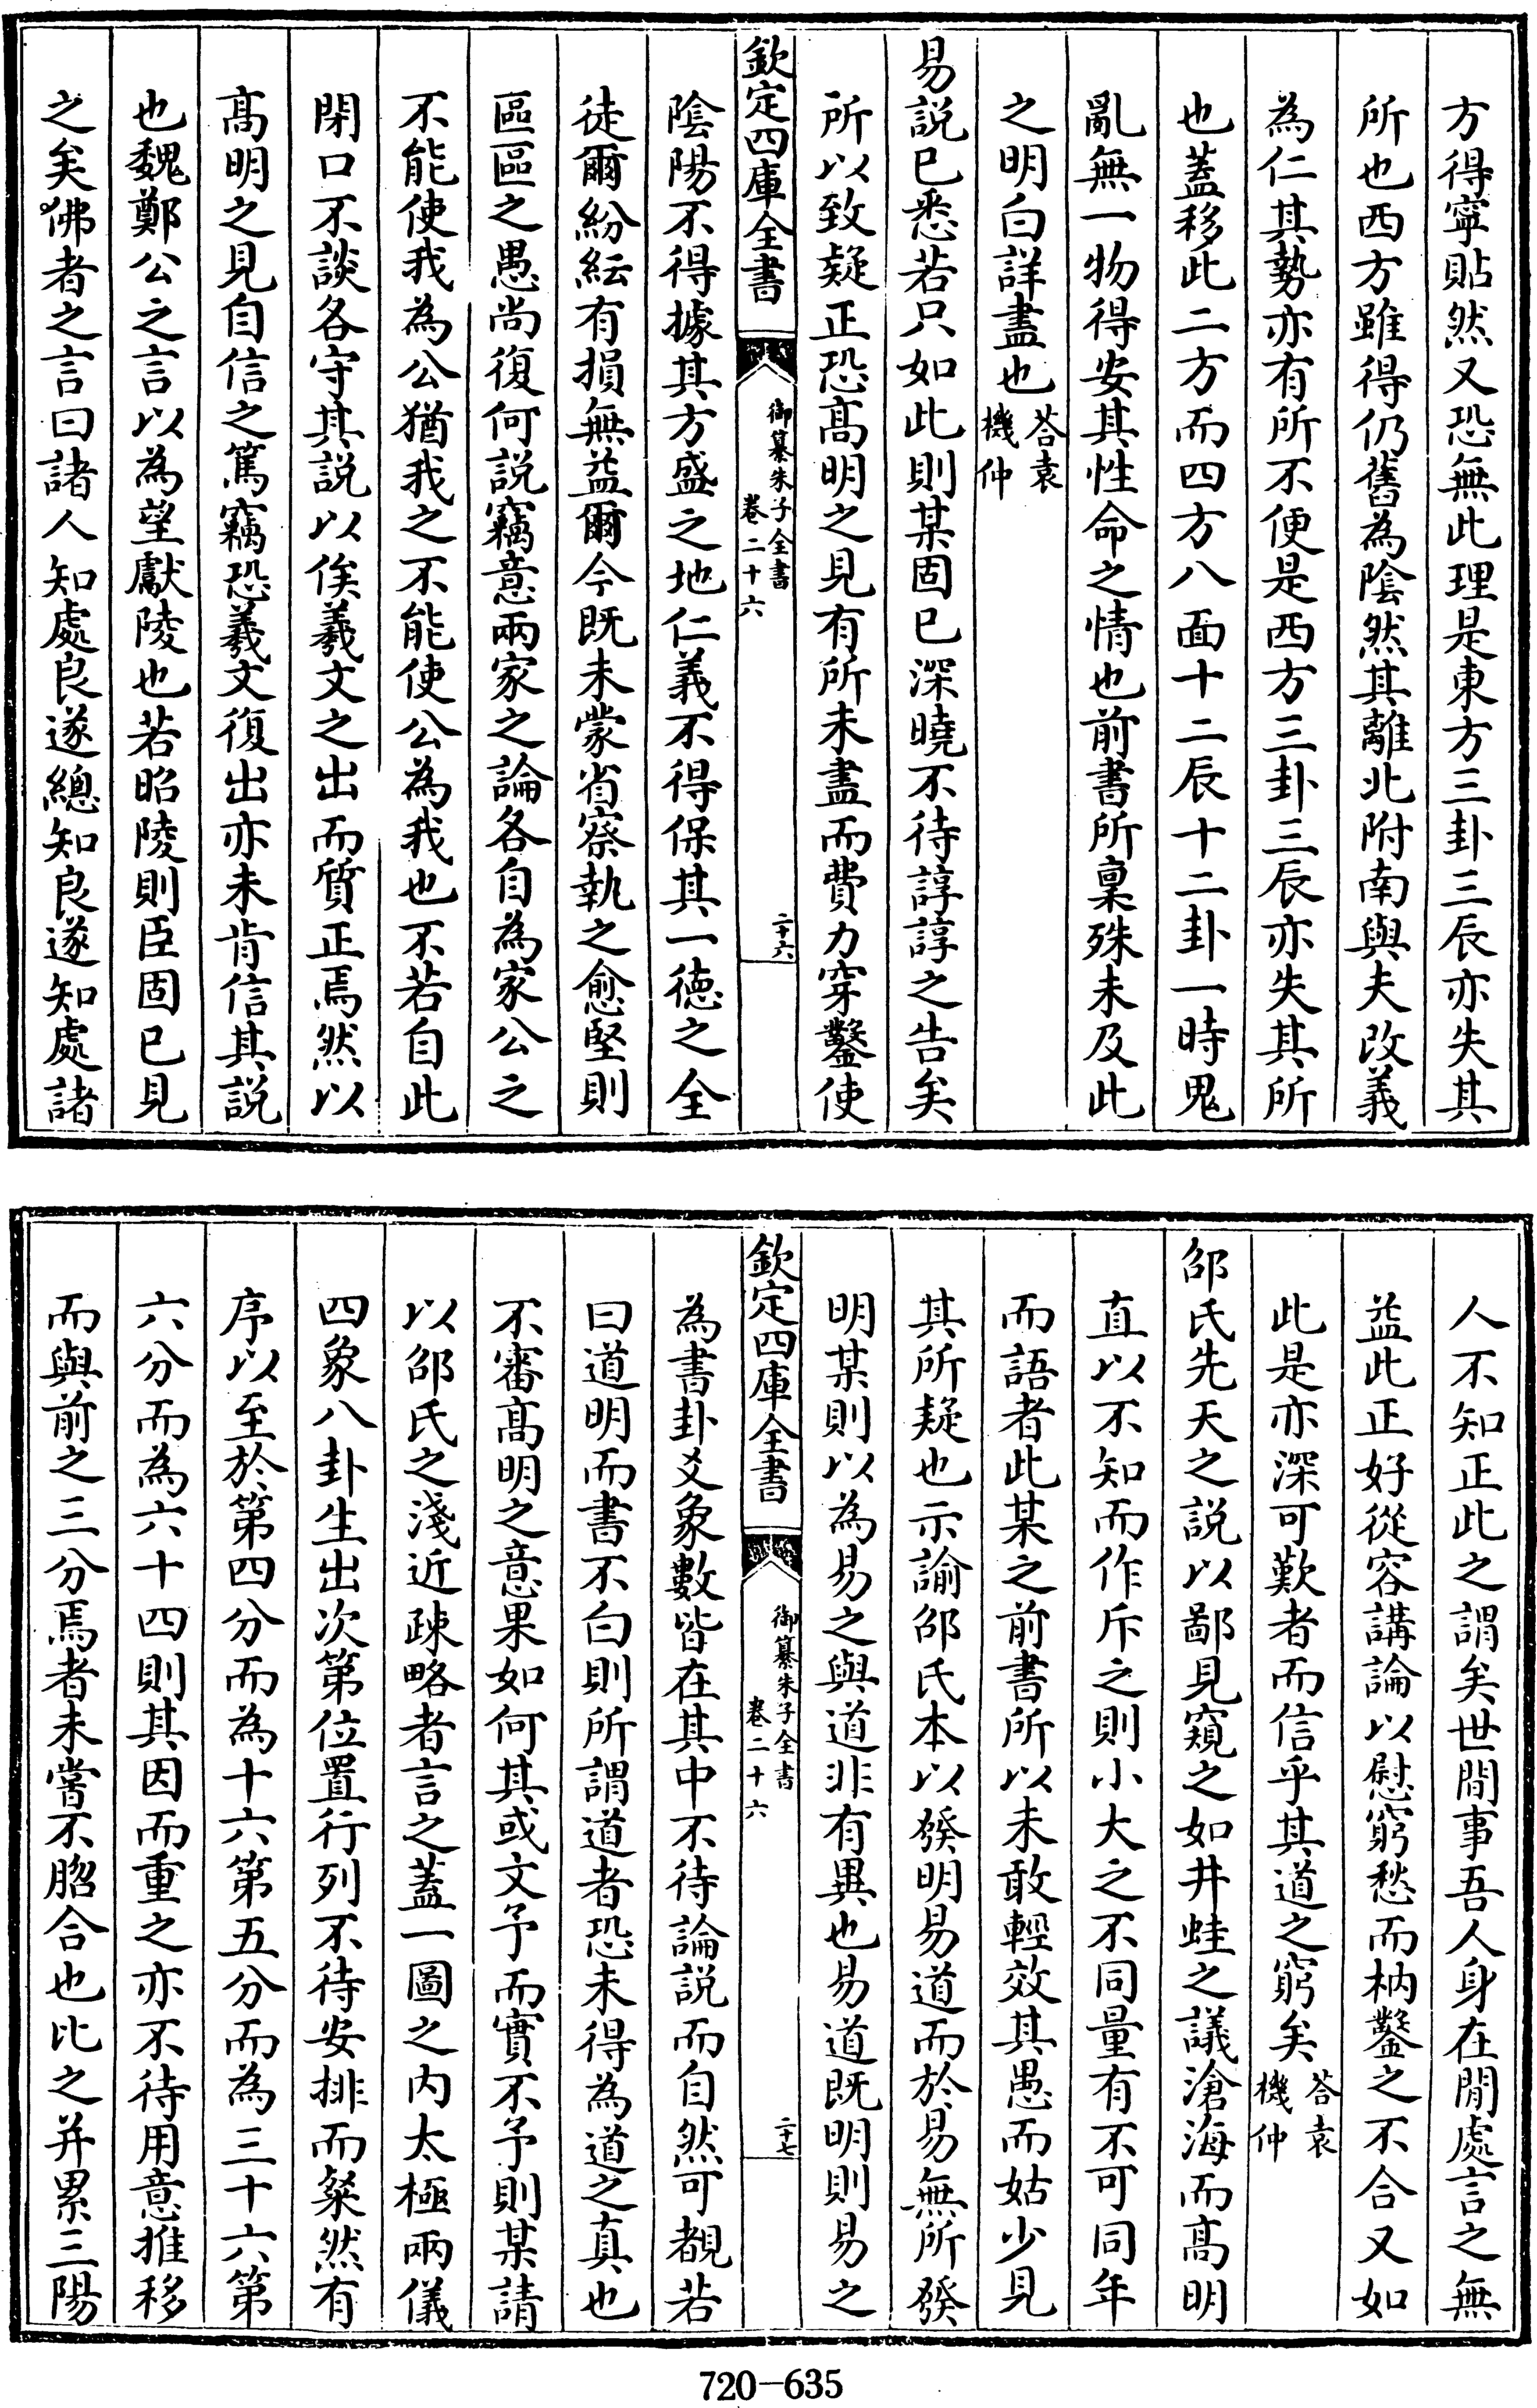 方得寧貼然又恐無此理是東方三卦三辰亦失其
所也西方雖得仍舊為陰然其離北附南與夫改義
為仁其勢亦有所不便是西方三卦三辰亦失其所
也蓋移此二方而四方八面十二辰十二卦一時鬼
亂無一物得安其性命之情也前書所稟殊未及此
之明白詳盡也答袁機仲
易説已悉若只如此則某固已深曉不待諄諄之告矣
所以致疑正恐髙明之見有所未盡而費力穿鑿使
欽定四庫全書
御纂朱子全書
卷二十六
二十六
陰陽不得據其方盛之地仁義不得保其一徳之全
徒爾紛紜有損無益爾今既未蒙省察執之愈堅則
區區之愚尚復何説竊意兩家之論各自為家公之
不能使我為公猶我之不能使公為我也不若自此
閉口不談各守其説以俟羲文之出而質正焉然以
髙明之見自信之篤竊恐羲文復出亦未肯信其説
也魏鄭公之言以為望獻陵也若昭陵則臣固已見
之矣佛者之言曰諸人知處良遂總知良遂知處諸
人不知正此之謂矣世間事吾人身在閒處言之無
益此正好從容講論以慰窮愁而枘鑿之不合又如
此是亦深可歎者而信乎其道之窮矣答袁機仲
邵氏先天之説以鄙見窺之如井蛙之議滄海而髙明
直以不知而作斥之則小大之不同量有不可同年
而語者此某之前書所以未敢輕效其愚而姑少見
其所疑也示諭邵氏本以發明易道而於易無所發
明某則以為易之與道非有異也易道既明則易之
欽定四庫全書
御纂朱子全書
卷二十六
二十七
為書卦爻象數皆在其中不待論説而自然可覩若
曰道明而書不白則所謂道者恐未得為道之真也
不審髙明之意果如何其或文予而實不予則某請
以邵氏之淺近疎略者言之蓋一圖之内太極兩儀
四象八卦生出次第位置行列不待安排而粲然有
序以至於第四分而為十六第五分而為三十六第
六分而為六十四則其因而重之亦不待用意推移
而與前之三分焉者未嘗不脗合也比之并累三陽
720-635